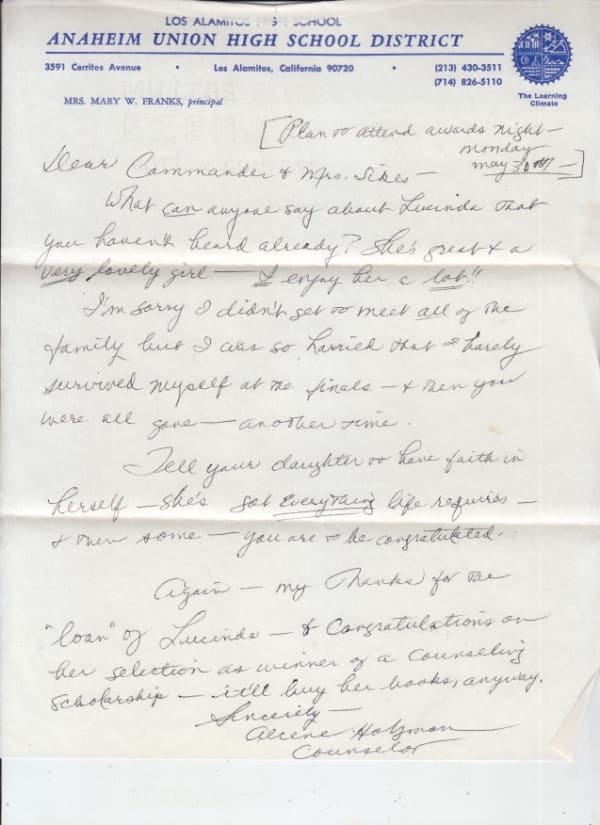 LOS ALAMITOS HIGH SCHOOL
ANAHEIM UNION HIGH SCHOOL DISTRICT
3591 Cerritos Avenue • Los Alamitos, California 90720 • (213) 430-3511
(714) 826-5110
The Learning
Climate
MRS. MARY W. FRANKS, principal
[Plan to attend awards night—
Monday
May 30th—]
Dear Commander & Mrs. Sikes—
What can anyone say about Lucinda that
you haven't heard already? She's great & a
very lovely girl — I enjoy her a lot!!
I'm sorry I didn't get to meet all of the
family but I was so harried that I barely
survived myself at the finals — & then you
were all gone — another time.
Tell your daughter to have faith in
herself — she's got everything life requires —
& then some — you are to be congratulated.
Again — my thanks for the
"loan" of Lucinda — & Congratulations on
her selection as winner of a Counseling
Scholarship — it'll buy her books, anyway.
Sincerely —
Holzman
Counselor